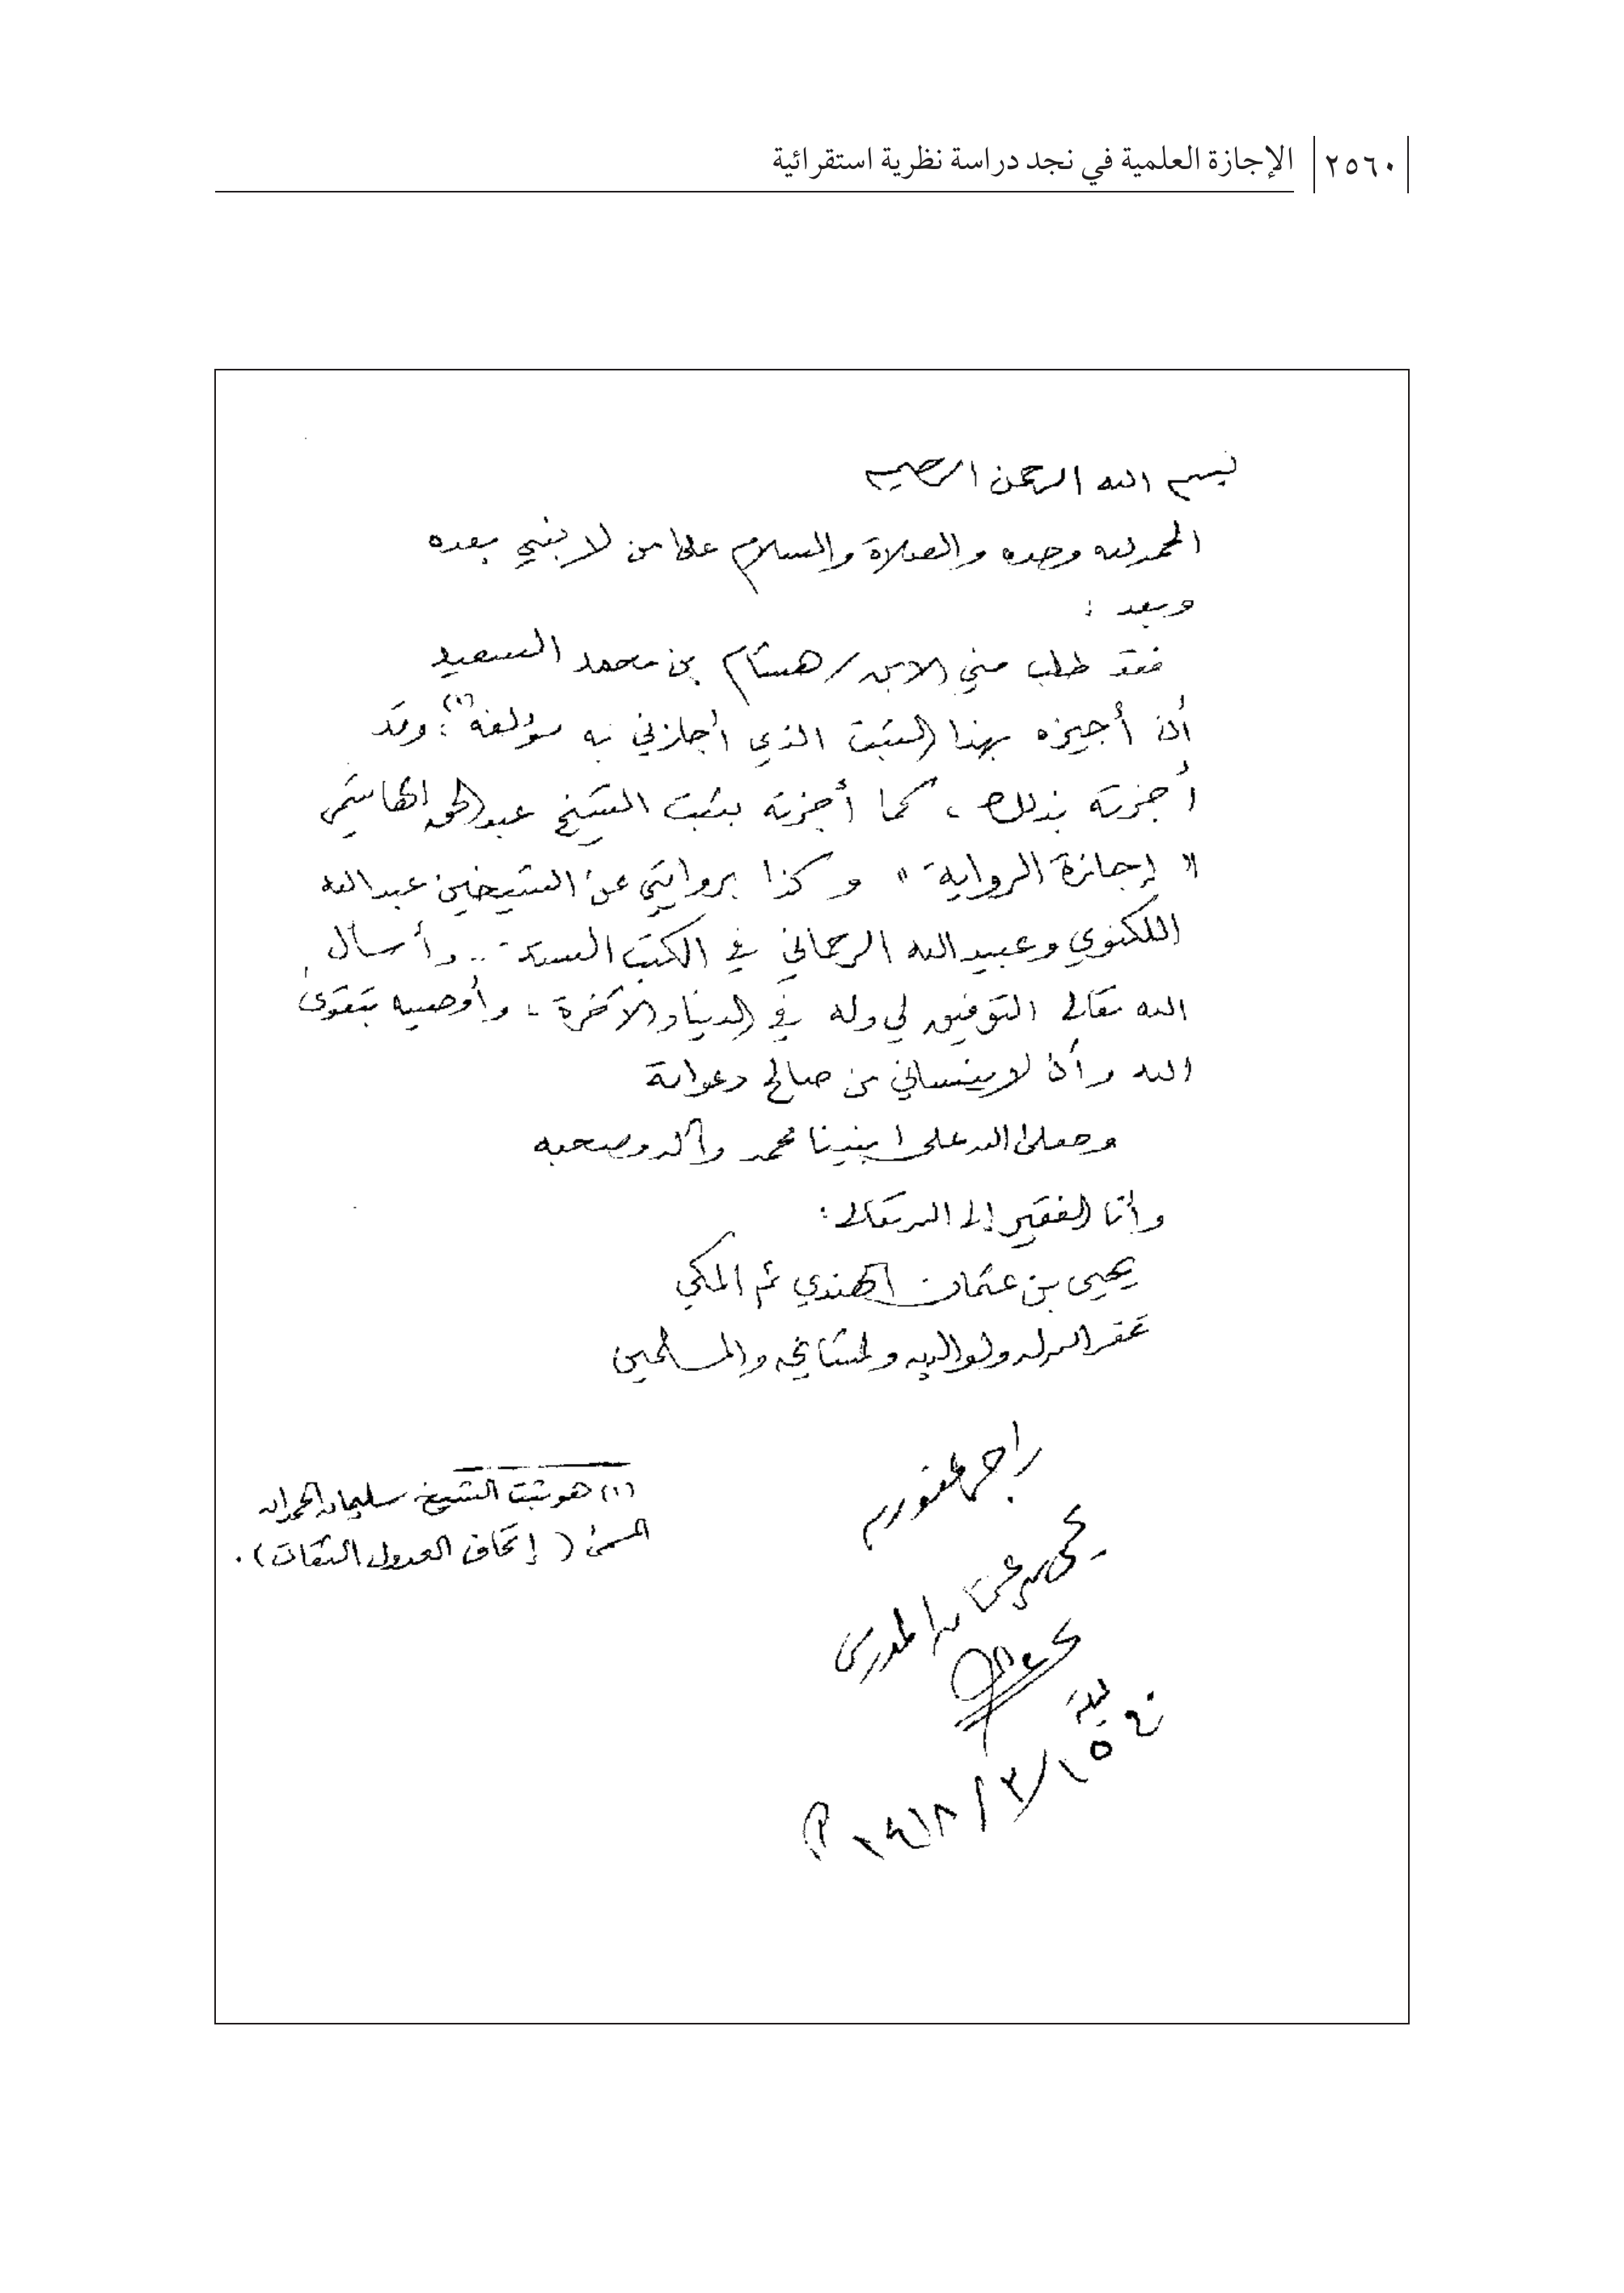 ٢٥٦٠ الإجازة العلمية في نجد دراسة نظرية استقرائية
بسم الله الرحمن الرحيم
الحمد لله وحده والصلاة والسلام على من لا نبي بعده
وبعد :
فقد طلب مني الابن / هشام بن محمد السعيد
أن أجيزه بهذا الثبت الذي أجازني به مؤلفه (١)؛ وقد
أجزته بذلك ، كما أجزته بثبت الشيخ عبد الحق الهاشمي
" إجازة الرواية " وكذا بروايتي عن الشيخين عبد الله
اللكنوي وعبيد الله الرحماني في الكتب الستة .. وأسأل
الله تعالى التوفيق لي وله في الدنيا والآخرة ، وأوصيه بتقوى
الله وأن لا ينساني من صالح دعواته
وصلى الله على نبينا محمد وآله وصحبه
وأنا الفقير إلى الله تعالى :
يحيى بن عثمان الهندي ثم المكي
غفر الله له ولوالديه ولمشايخه والمسلمين
يحيى بن عثمان المدرس
في ليلة
١٥ / ٣ / ١٤١٨ هـ
(١) هو ثبت الشيخ سليمان الحمدان
المسمى ( إتحاف العدول الثقات ) .